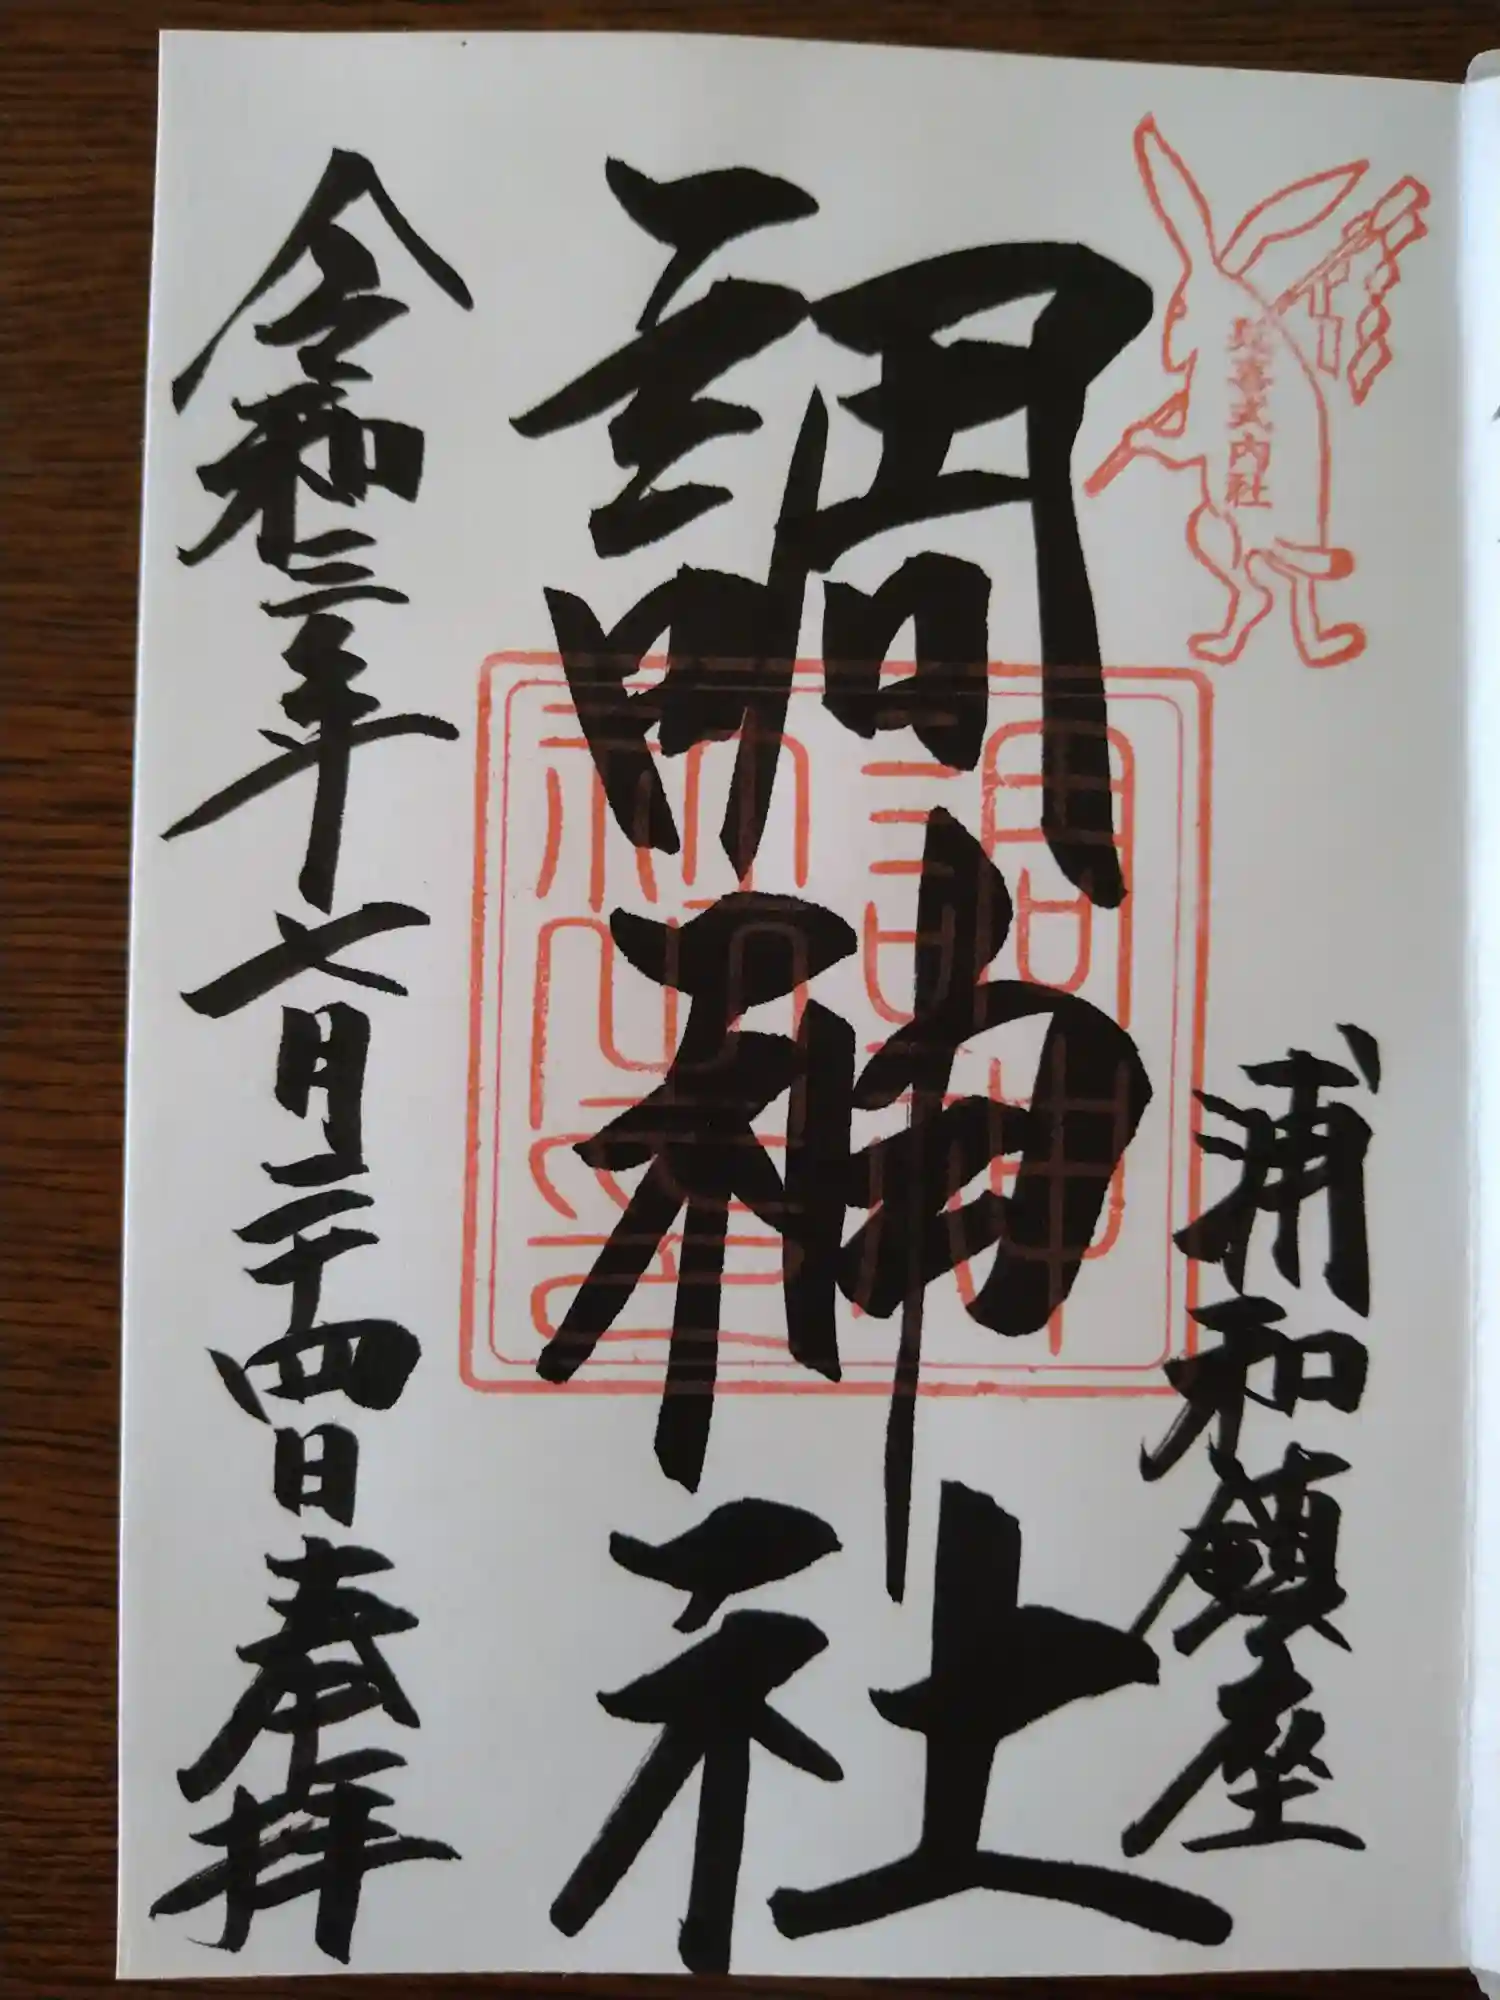 延喜式内社
浦和鎮座
調神社
調神社印
令和三年七月二十四日奉拝